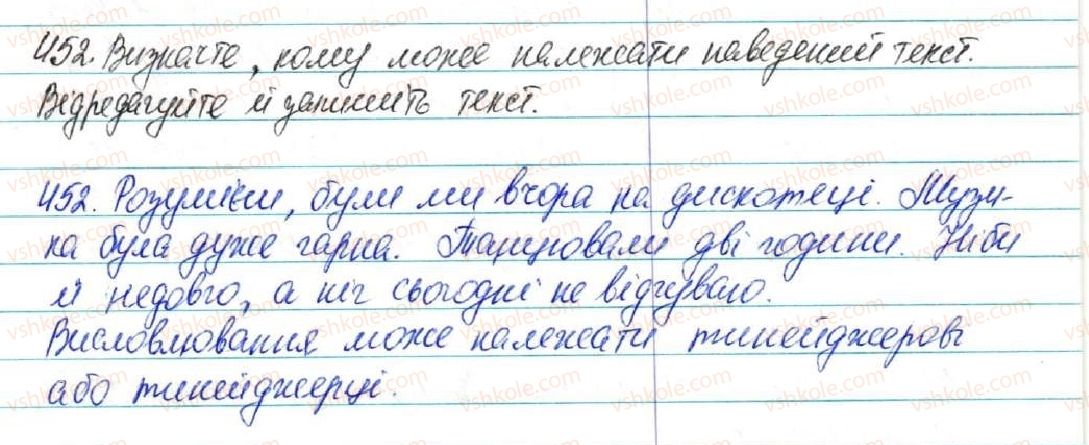 452. Визначте, кому може належати наведений текст.
Відредагуйте й запишіть текст.
452. Розумієш, були ми вчора на дискотеці. Музи-
ка була дуже гарна. Танцювали дві години. Ніби
й недовго, а ніг сьогодні не відчуваю.
Висловлювання може належати тинейджерові
або тинейджерці.